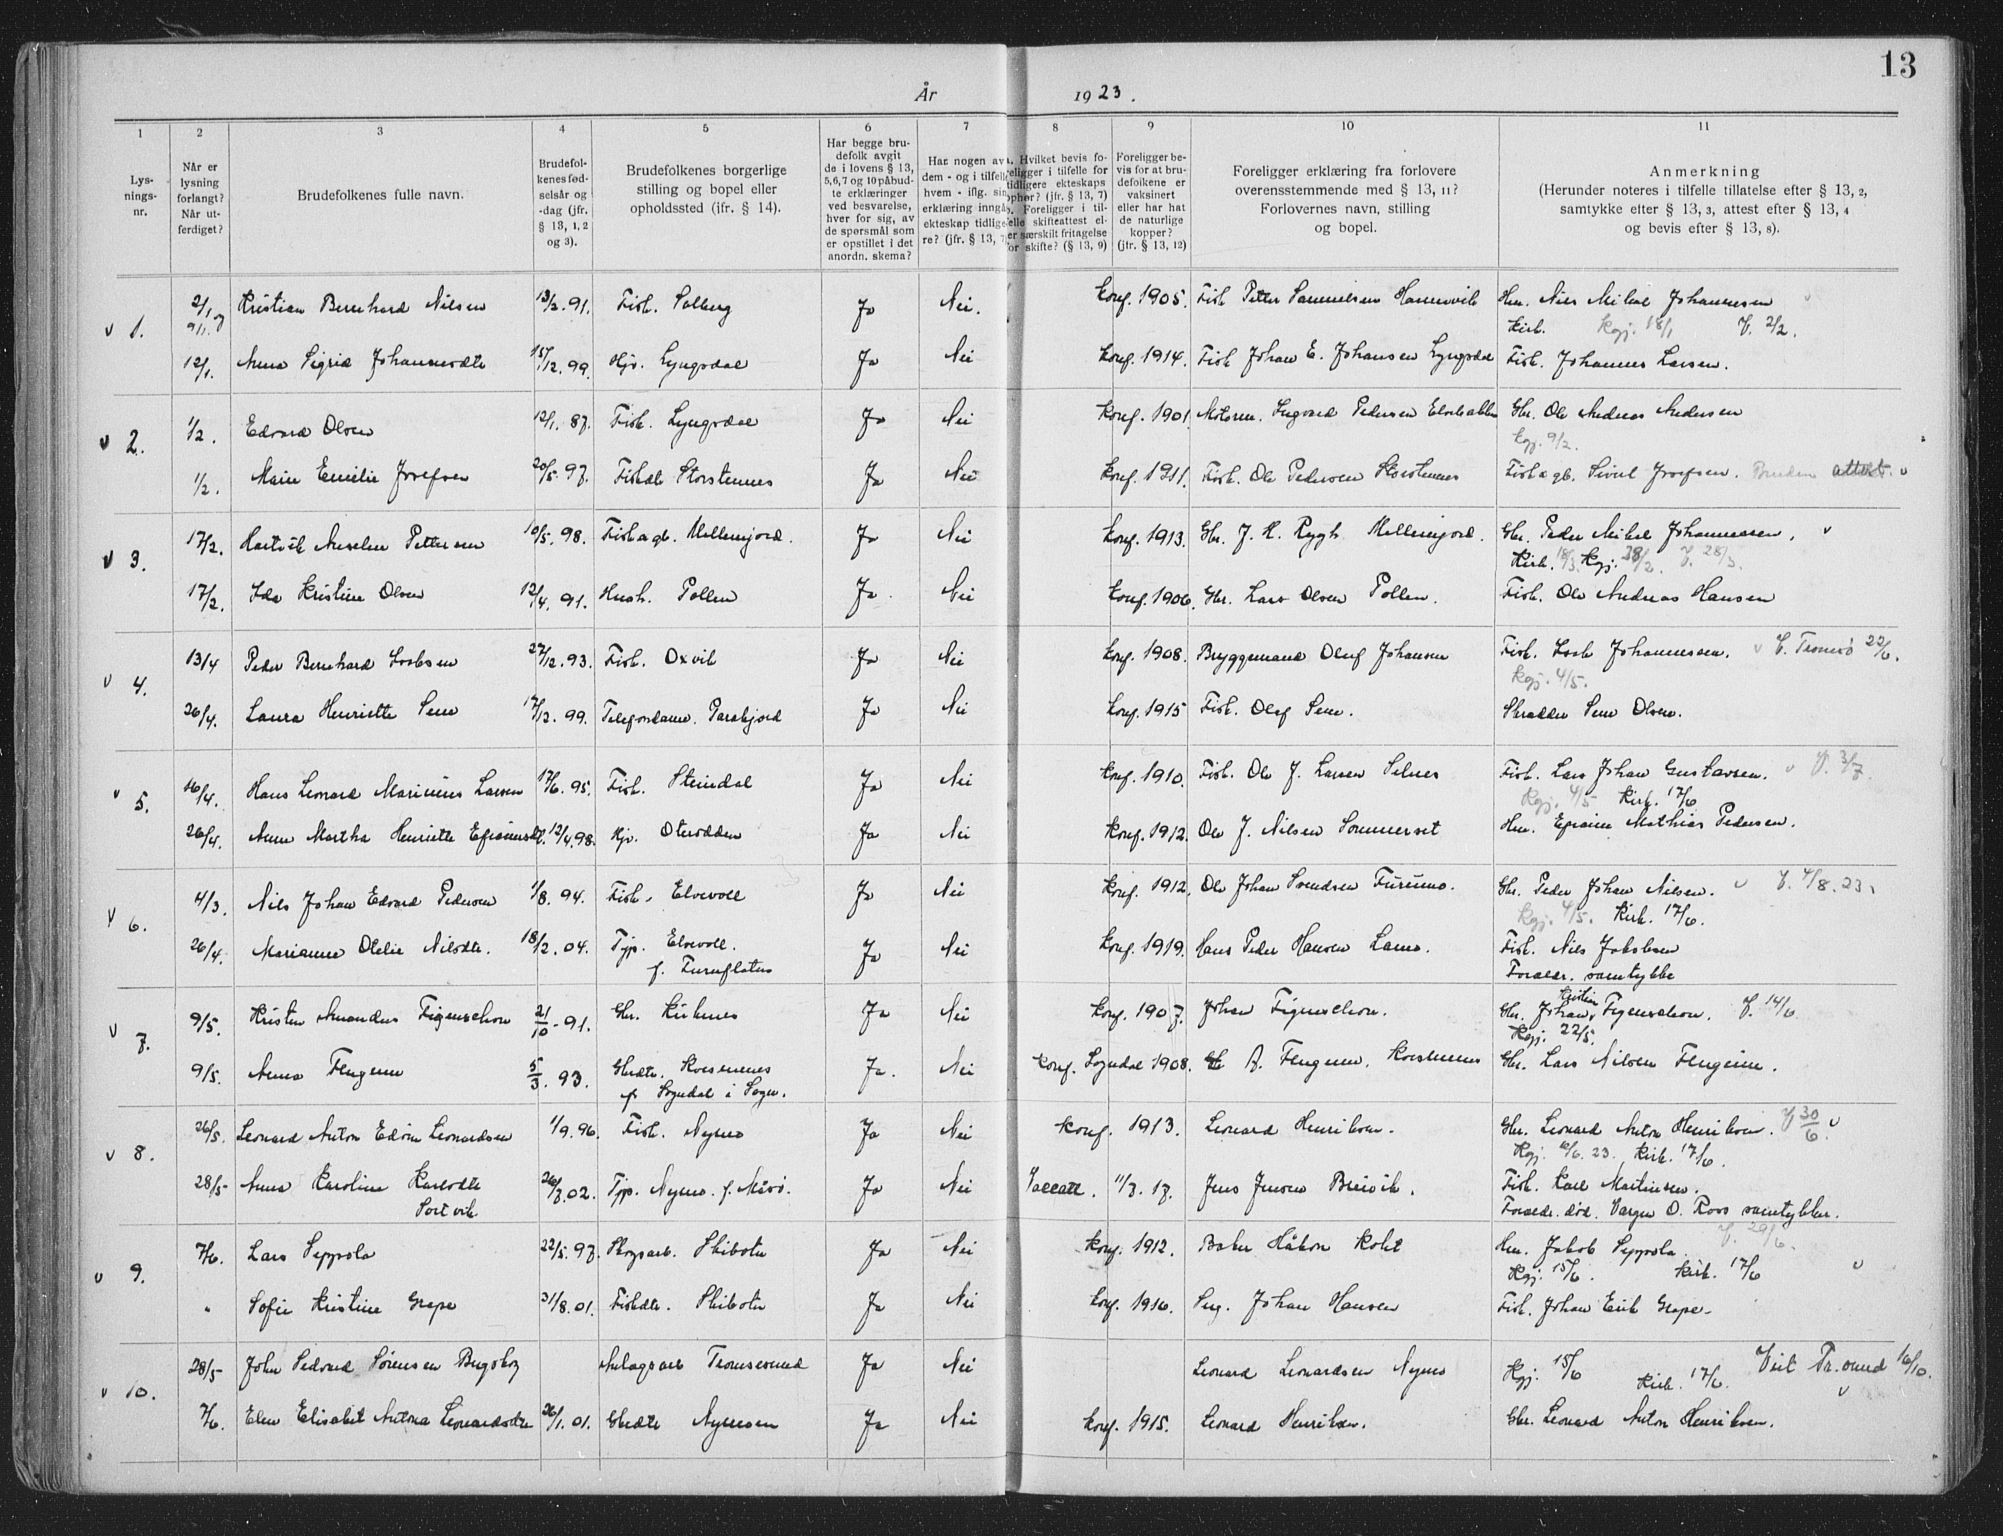 13
År 1923.
1 2 3 4 5 6 7 8 9 10 11
Lys-
nings-
nr.
Når er
lysning
forlangt?
Når ut-
ferdiget?
Brudefolkenes fulle navn.
Brudefol-
kenes fød-
selsår og
-dag (jfr.
§ 13, 1, 2
og 3).
Brudefolkenes borgerlige
stilling og bopel eller
opholdssted (ifr. § 14).
Har begge bru-
defolk avgit
de i lovens § 13,
5,6,7 og 10 påbud-
te erklæringer
ved besvarelse,
hver for sig, av
de spørsmål som
er opstillet i det
anordn. skema?
Har nogen av
dem - og i tilfelle
hvem - iflg. sin
erklæring inngå
ekteskap tidlige
re? (jfr. § 13, 7
Hvilket bevis fo-
religger i tilfelle for
tidligere ekteskaps
ophør? (§ 13, 7)
Foreligger i til-
felle skifteattest el-
er særskilt fritagelse
for skifte? (§ 13, 9)
Foreligger be-
vis for at bru-
defolkene er
vaksinert
eller har hat
de naturlige
kopper?
(jfr. § 13, 12)
Foreligger erklæring fra forlovere
overensstemmende med § 13, 11?
Forlovernes navn, stilling
og bopel.
Anmerkning
(Herunder noteres i tilfelle tillatelse efter § 13, 2,
samtykke efter § 13, 3, attest efter § 13, 4
og bevis efter § 13, 8).
v 1. 2/1 og 9/1. Kristian Bernhard Nilsen 13/2. 91. Fisk. Solberg Ja Nei. konf. 1905. Fisk Petter Samuelsen Hamnvik Hm. Nils Mikal Johannesen
Kirk. kgj. 18/1 V. 2/2.
12/1. Anna Sigrid Johannesdtr 15/12. 99. Hjv. Lyngsdal Ja Nei konf. 1914. Fisk Johan E. Johansen Lyngsdal Fisk. Johannes Larsen.
v 2. 1/2. Edvard Olsen 12/1. 87. Fisk. Lyngsdal Ja Nei konf. 1901 Motorm. Ingvard Pedersen Elvebakken Gbr. Ole Andreas Andersen
kgj. 9/2.
1/2. Marie Emelie Josefsen 20/5. 97. Fiskdtr Storstennes Ja Nei konf. 1911. Fisk. Ole Pedersen Storstennes Fisk og gb. Sivert Josefsen. Bruden attest. v
v 3. 17/2. Hartvik Anselm Pettersen 10/5. 98. Fisk og gb. Mellemjord. Ja Nei konf. 1913. Gbr. J. H. Rygh Mellemjord. Gbr. Peder Mikal Johannesen. v
Kirk. 18/3. Kgj. 28/2. V. 28/3.
17/2. Ida Kristine Olsen 12/4. 91. Hush. Pollen Ja. Nei konf. 1906. Gbr. Lars Olsen Pollen. Fisk. Ole Andreas Hansen
v 4. 13/4 Peder Bernhard Isaksen 27/12. 93. Fisk. Oxvik Ja Nei konf. 1908. Bryggemand Oluf Johansen Fisk. Isak Johannessen. v V. Tromsø 22/6.
kgj. 4/5.
26/4. Laura Henriette Sene 17/12. 99. Telefondame. Parakjord Ja Nei konf. 1915 Fisk. Olaf Sene. Skrædder Sene Olsen.
v 5. 16/4. Hans Leonard Marinius Larsen 17/6. 95. Fisk. Steindal Ja Nei konf. 1910. Fisk. Ole J. Larsen Selnes Fisk. Lars Johan Gustavsen. v V. 3/7.
Kgj. 4/5 Kirk. 17/6
26/4. Anne Martha Henriette Efraimsdtr. 12/4. 98. Hjv. Oterodden Ja Nei konf. 1912. Ole J. Nilsen Sommerset Hm. Efraim Mathias Pedersen.
v 6. 4/3. Nils Johan Edvard Pedersen 1/8. 94. Fisk. Elvevoll Ja Nei konf. 1912. Ole Johan Svendsen Furumo. Gbr. Peder Johan Nilsen. v V. 4/8. 23.
kgj. 4/5. Kirk. 17/6.
26/4. Marianne Otelie Nilsdtr. 18/2. 04. Tjp. Elvevoll.
f. Furuflaten Ja Nei konf. 1919. Hans Peder Hansen Lamo. Fisk. Nils Jakobsen
Forældr. samtykke
v 7. 9/5. Kristen Amandus Figenschou 21/10. 91. Gbr. Kirknes Ja Nei konf. 1907. Johan Figenschou. Gbr. Johan Kristian Figenschou. V. 14/6.
Kgj. 22/5.
9/5. Anna Flugeim 5/3. 93. Gbrdtr. Korsnes
f. Sogndal i Sogn. Ja. Nei konf. Sogndal 1908. Gbr A. Flugeim, Korsnes Gbr. Lars Nilsen Flugeim.
v 8. 26/5. Leonard Anton Edvin Leonardsen 1/9. 96. Fisk. Nymo Ja Nei konf. 1913. Leonard Henriksen. Gbr. Leonard Anton Henriksen. V 30/6. v
Kgj. 10/6. 23. Kirk. 17/6.
28/5 Anna Karoline Karlsdtr
Sortvik 26/7. 02. Tjp. Nymo. f. Måsø. Ja Nei Vaccatt. 11/7. 17. Jens Jensen Breivik. Fisk. Karl Martinsen.
Forældr. død. Vergen O. Roos samtykker.
v 9. 7/6. Lars Seppola 22/5. 97. Skogsarb. Skibotn Ja Nei konf. 1912. Baker Håkon Kokt Hm. Jakob Seppola. V. 29/6.
Kgj. 15/6. Kirk. 17/6 v
" Sofie Kristine Grape 31/8. 01. Fiskdtr. Skibotn Ja Nei konf. 1916. Sng. Johan Hansen Fisk. Johan Erik Grape.
v 10. 28/5 John Sedvard Sørensen Bugskog Anlægsarb Tromsøsund Ja Nei Leonard Leonardsen Nymo Kgj. 15/6 Kirk. 17/6. Viet Tr.sund 16/10.
v
7/6. Elen Elisabet Antona Leonardsdtr 26/1. 01. Gbrdtr Nymoen Ja Nei konf. 1915. Leonard Henriksen. Gbr. Leonard Anton Henriksen.